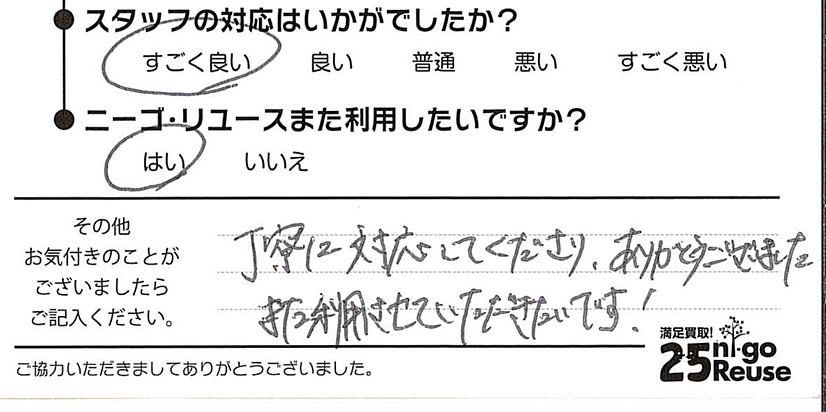 スタッフの対応はいかがでしたか？
すごく良い　良い　普通　悪い　すごく悪い
ニーゴ・リユースまた利用したいですか？
はい　いいえ
その他
お気付きのことが
ございましたら
ご記入ください。
丁寧に対応してくださり、ありがとうございました
また利用させていただきたいです！
満足買取！
25 ni-go
Reuse
ご協力いただきましてありがとうございました。